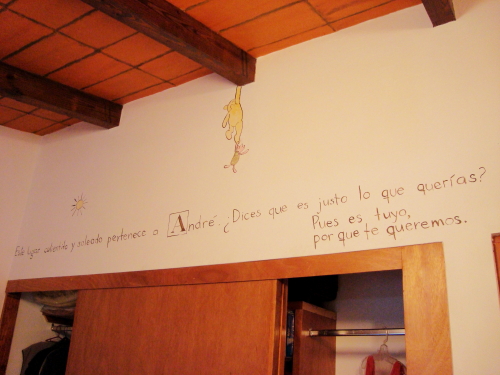 Este lugar calientito y soleado pertenece a André. ¿Dices que es justo lo que querías?
Pues es tuyo,
porque te queremos.